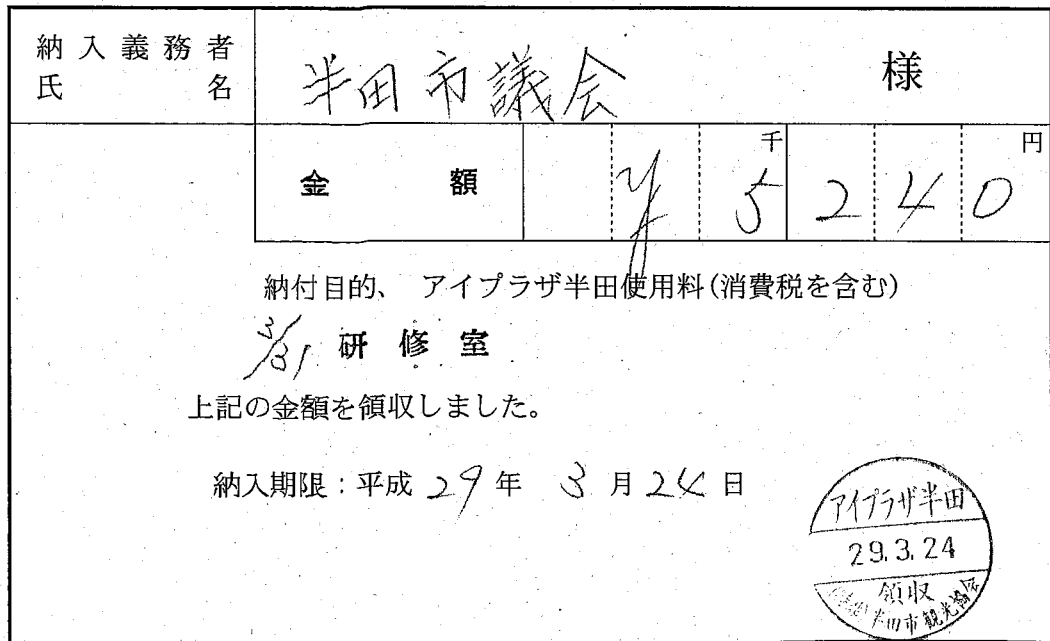 納入義務者
氏名
半田市議会 様
金額 千 円
¥5240
納付目的、 アイプラザ半田使用料(消費税を含む)
3/31 研修室
上記の金額を領収しました。
納入期限:平成 29年 3月24日
アイプラザ半田
29.3.24
領収
半田市観光協会